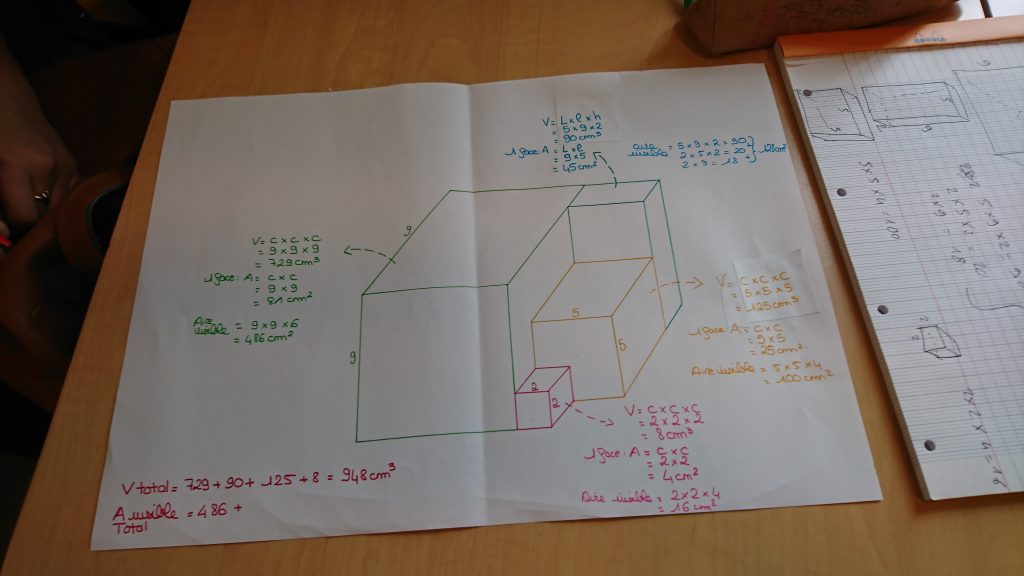 V = L x l x h
= 5 x 9 x 2
= 90 cm³
1 face : A = L x l
= 9 x 5
= 45 cm²
aire visible = 5 x 9 x 2 = 90
2 x 5 x 2 = 20
2 x 9 = 18
128cm²
V = c x c x c
= 9 x 9 x 9
= 729 cm³
1 face : A = c x c
= 9 x 9
= 81 cm²
Aire visible = 9 x 9 x 6
= 486 cm²
9
9
5
5
2
2
V = c x c x c
= 5 x 5 x 5
= 125 cm³
1 face : A = c x c
= 5 x 5
= 25 cm²
Aire visible = 5 x 5 x 4
= 100 cm²
V = c x c x c
= 2 x 2 x 2
= 8 cm³
1 face : A = c x c
= 2 x 2
= 4 cm²
Aire visible = 2 x 2 x 4
= 16 cm²
V total = 729 + 90 + 125 + 8 = 948 cm³
A visible = 486 +
Total
RHODIA
5 x 5 x 4 = 100
5 x 9 x 2 =
2 x 5 x 2 = 20
2 x 9 = 18
2 x 2 x 4 = 16